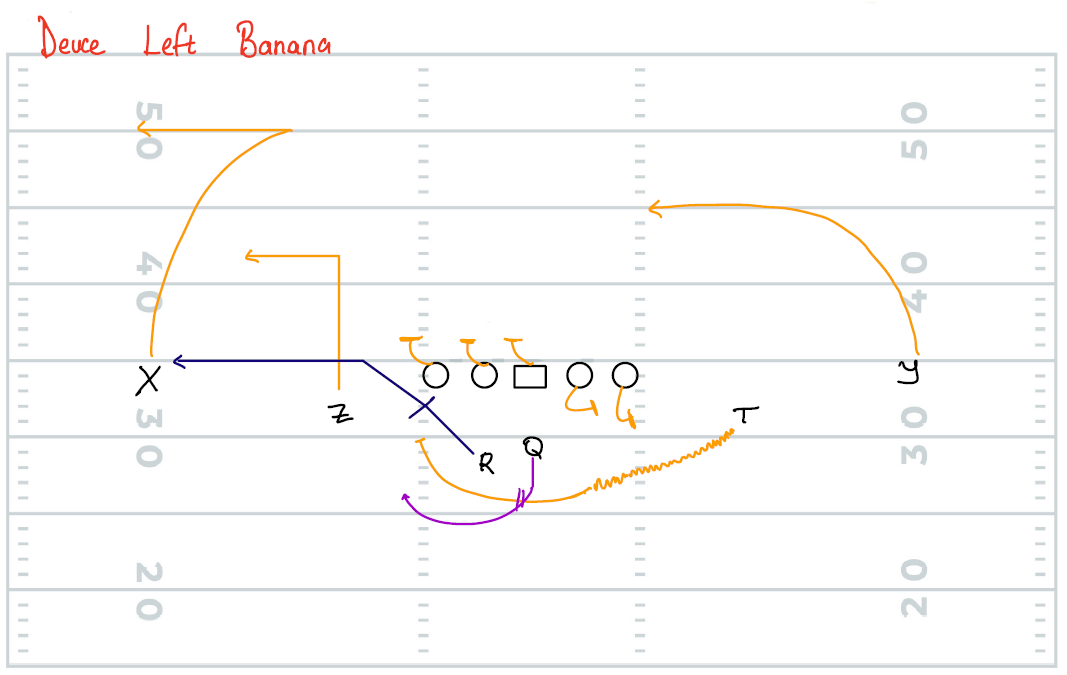 Deuce Left Banana
50
50
40
40
X
Y
Z
T
30
30
R
Q
20
20